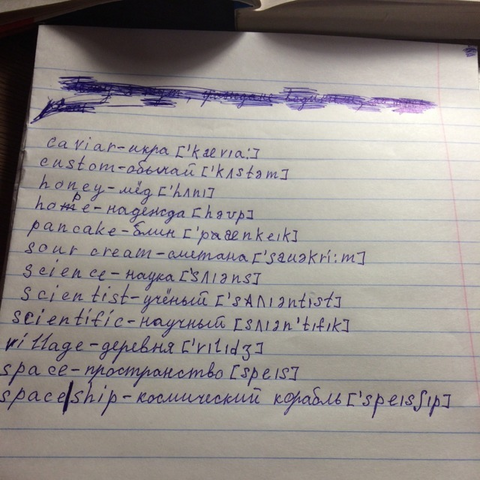 caviar-икра ['kæviaː]
custom-обычай ['kʌstəm]
honey-мёд ['hʌnı]
hope-надежда [həʋp]
pancake-блин ['pæenkeık]
sour cream-сметана ['saʋəkriːm]
science-наука ['sʌıəns]
scientist-учёный ['sʌıəntist]
scientific-научный [sʌıən'tıfık]
village-деревня ['vılıdʒ]
space-пространство [speıs]
space|ship-космический корабль ['speısʃıp]